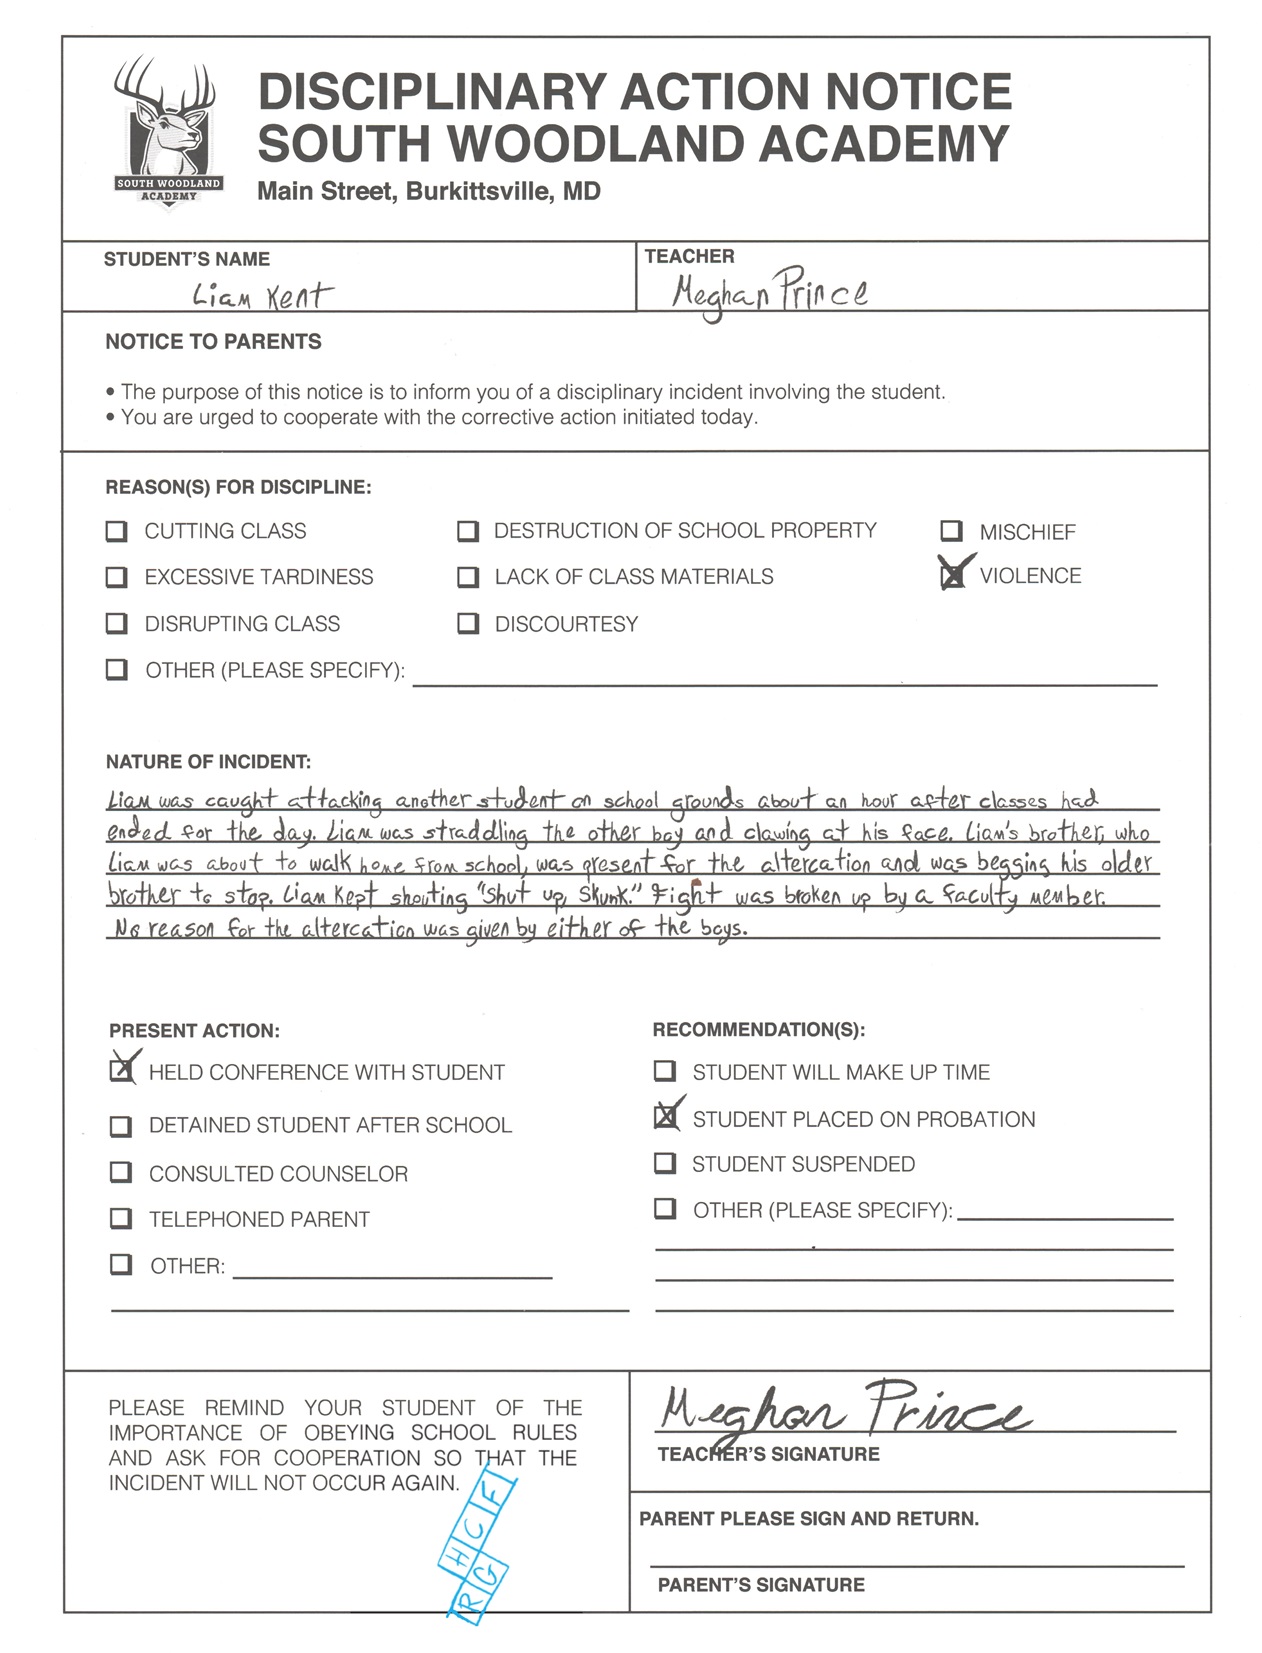 SOUTH WOODLAND
ACADEMY
DISCIPLINARY ACTION NOTICE
SOUTH WOODLAND ACADEMY
Main Street, Burkittsville, MD
STUDENT'S NAME
Liam Kent
TEACHER
Meghan Prince
NOTICE TO PARENTS
• The purpose of this notice is to inform you of a disciplinary incident involving the student.
• You are urged to cooperate with the corrective action initiated today.
REASON(S) FOR DISCIPLINE:
CUTTING CLASS
DESTRUCTION OF SCHOOL PROPERTY
MISCHIEF
EXCESSIVE TARDINESS
LACK OF CLASS MATERIALS
VIOLENCE
DISRUPTING CLASS
DISCOURTESY
OTHER (PLEASE SPECIFY):
NATURE OF INCIDENT:
Liam was caught attacking another student on school grounds about an hour after classes had
ended for the day. Liam was straddling the other boy and clawing at his face. Liam's brother, who
Liam was about to walk home from school, was present for the altercation and was begging his older
brother to stop. Liam kept shouting "Shut up, Skunk." Fight was broken up by a faculty member.
No reason for the altercation was given by either of the boys.
PRESENT ACTION:
HELD CONFERENCE WITH STUDENT
DETAINED STUDENT AFTER SCHOOL
CONSULTED COUNSELOR
TELEPHONED PARENT
OTHER:
RECOMMENDATION(S):
STUDENT WILL MAKE UP TIME
STUDENT PLACED ON PROBATION
STUDENT SUSPENDED
OTHER (PLEASE SPECIFY):
PLEASE REMIND YOUR STUDENT OF THE
IMPORTANCE OF OBEYING SCHOOL RULES
AND ASK FOR COOPERATION SO THAT THE
INCIDENT WILL NOT OCCUR AGAIN.
HCF
RG
Meghan Prince
TEACHER'S SIGNATURE
PARENT PLEASE SIGN AND RETURN.
PARENT'S SIGNATURE